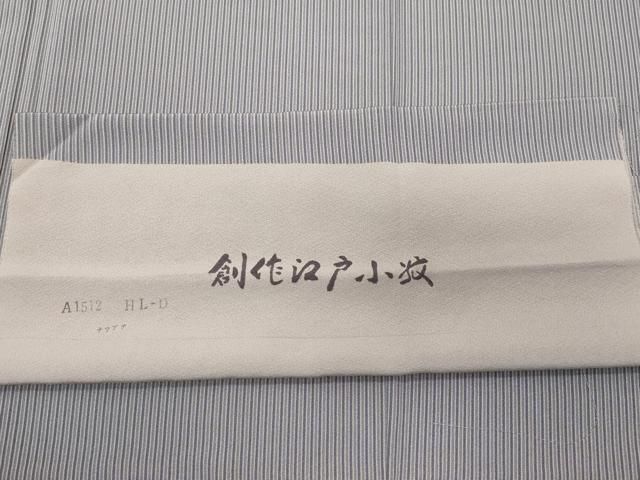 創作江戸小紋
A1512 HL-D